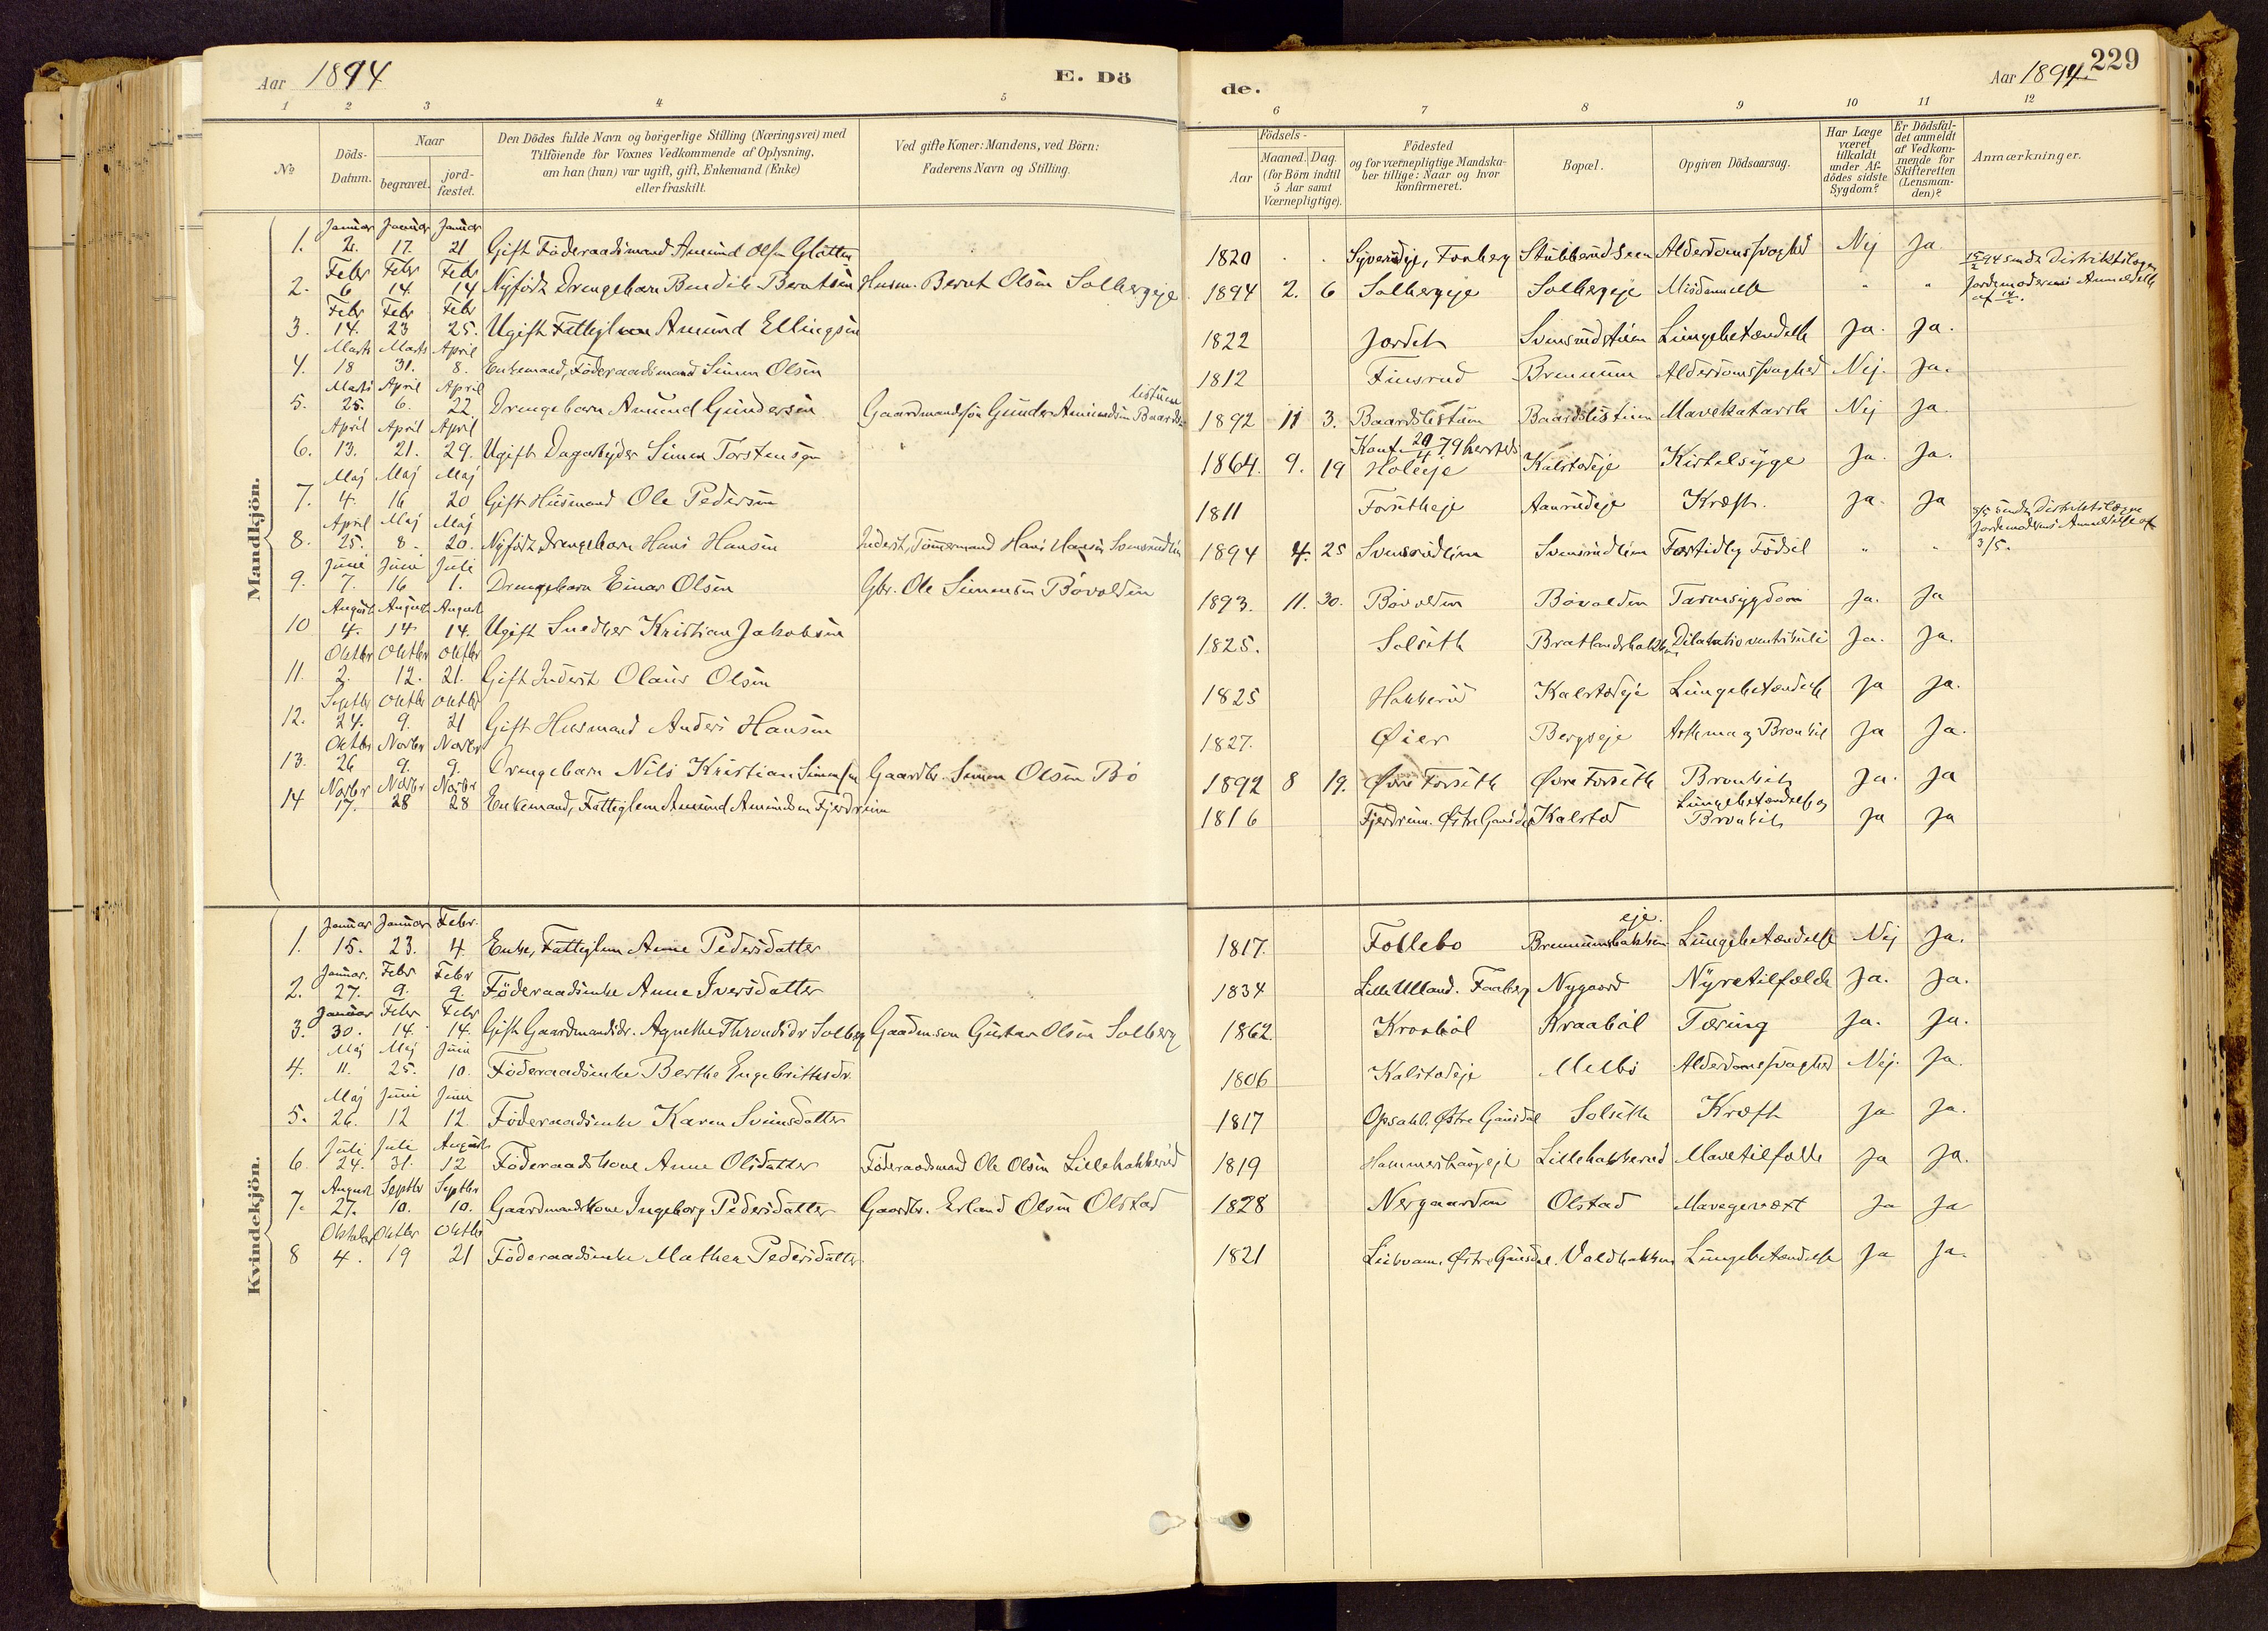 Aar 1894 E. Dö de. Aar 1894 229
1 2 3 4 5 6 7 8 9 10 11 12
No Döds-Datum. Naar begravet. jord-fæstet. Den Dödes fulde Navn og borgerlige Stilling (Næringsvei) med Tilföiende for Voxnes Vedkommende af Oplysning, om han (hun) var ugift, gift, Enkemand (Enke) eller fraskilt. Ved gifte Koner: Mandens, ved Börn: Faderens Navn og Stilling. Födsels- Aar Maaned. Dag. (for Börn indtil 5 Aar samt Værnepligtige). Födested og for værnepligtige Mandskaber tillige: Naar og hvor konfirmeret. Bopæl. Opgiven Dödsaarsag. Har Læge været tilkaldt under Afdödes sidste Sygdom? Er Dödsfaldet anmeldt af Vedkommende for Skifteretten (Lensmanden)? Anmærkninger.
Mandkjön.
Januar Januar Januar
1. 2. 17. 21 Gift Föderaadsmand Amund Olsen Glötten 1820 . . Syverudeje, Faaberg Stubberudseen Alderdomssvaghed Nej Ja
Febr Febr Febr
2. 6 14. 14 Nyfödt Drengebarn Bendik Berntsen Husm. Bernt Olsen Solbergeje 1894 2. 6 Solbergeje Solbergeje Misdannelse " " 15/2 94 sendt Distriktslægen Jordemoderens Anmeldelse af 14/2.
Febr Febr Febr
3. 14. 23 25. Ugift Fattiglem Amund Ellingsen 1822 Jordet Svensrudstuen Lungebetændelse Ja. Ja.
Marts Marts April
4. 18 31. 8. Enkemand, Föderaadsmand Simen Olsen 1812 Finsrud Brennum Alderdomssvaghed Nej. Ja.
Marts April April
5. 25. 6. 22 Drengebarn Amund Gundersen Gaardmandssön Gunder Amundsen Baardslistuen 1892 11 3. Baardslistuen Baardslistuen Mavekatarrh Nej Ja
April April April
6. 13. 21. 29. Ugift Dagarbejder Simen Torstensen 1864. 9. 19 Holeeje Konf. 20/4 79 hersteds Kalstadeje Kirtelsyge Ja. Ja.
Maj Maj Maj
7. 4. 16 20 Gift Husmand Ole Pedersen 1811 Forsetheje Aanrudeje Kræft. Ja. Ja
April Maj Maj
8. 25. 8. 20. Nyfödt Drengebarn Hans Hansen Inderst, Tömmermand Hans Hansen Svensrudlien 1894 4. 25 Svensrudlien Svensrudlien Fortidlig Födsel " " 5/5 sendt Distriktslægen Jordemoderens Anmeldelse af 3/5.
Juni Juni Juli
9. 7. 16 1. Drengebarn Einar Olsen Gbr. Ole Simensen Bövolden 1893. 11. 30. Bövolden Bövolden Tarmsygdom Ja. Ja
August August August
10 4. 14. 14. Ugift Snedker Kristian Jakobsen 1825. Solseth Bratlandsbakken Dilatatio ventriculi Ja. Ja.
Oktbr Oktbr Oktbr
11. 2. 12. 21. Gift Inderst Olaus Olsen 1825 Hakkerud Kalstadeje Lungebetændelse Ja Ja.
Septbr Oktbr Oktbr
12. 24. 9. 21 Gift Husmand Anders Hansen 1827. Øier Bergseje Asthma og Bronkit Ja Ja.
Oktbr Novbr Novbr
13. 26 9. 9. Drengebarn Nils Kristian Simensen Gaardbr. Simen Olsen Bö 1892 8 19. Øvre Forseth Øvre Forseth Bronkit Ja. Ja
Novbr Novbr Novbr
14 17. 28 28 Enkemand, Fattiglem Amund Amundsen Fjerdrum 1816 Fjerdrum. Østre Gausdal Kalstad Lungebetændelse og Bronkit Ja Ja
Kvindekjön.
Januar Januar Febr.
1. 15. 23. 4. Enke, Fattiglem Anne Pedersdatter 1817. Follebo Brennumsbakkeneje. Lungebetændelse Nej Ja.
Januar. Febr Febr
2. 27. 9. 9. Föderaadsenke Anne Iversdatter 1834 Lille Ulland. Faaberg Nygaard Nyretilfælde Ja. Ja.
Januar Febr Febr
3. 30. 14. 14. Gift Gaardmandsdr. Agnethe Throndsdr Solberg Gaardm.sön Gustav Olsen Solberg 1862 Kraaböl Kraaböl Tæring Ja. Ja.
Maj Maj Juni
4. 11. 25. 10. Föderaadsenke Berthe Engebrittsdr. 1806 Kalstadeje Melbö Alderdomssvaghed Nej. Ja.
Maj Juni Juni
5. 26. 12 12. Föderaadsenke Karen Svensdatter 1817 Opsahl. Østre Gausdal Solseth Kræft Ja Ja.
Juli Juli August
6. 24. 31. 12 Föderaadskone Anne Olsdatter Föderaadsmand Ole Olsen Lillehakkerud 1819 Hammershaugeje Lillehakkerud Mavetilfælde Ja Ja.
August Septbr Septbr
7. 27. 10. 10. Gaardmandskone Ingeborg Pedersdatter Gaardbr. Erland Olsen Olstad 1828 Nergaarden Olstad Mavegevæxt Ja Ja
Oktober Oktbr Oktbr
8 4. 19 21 Föderaadsenke Mathea Pedersdatter. 1821 Liesvam. Østre Gausdal. Voldbakken Lungebetændelse Ja Ja.